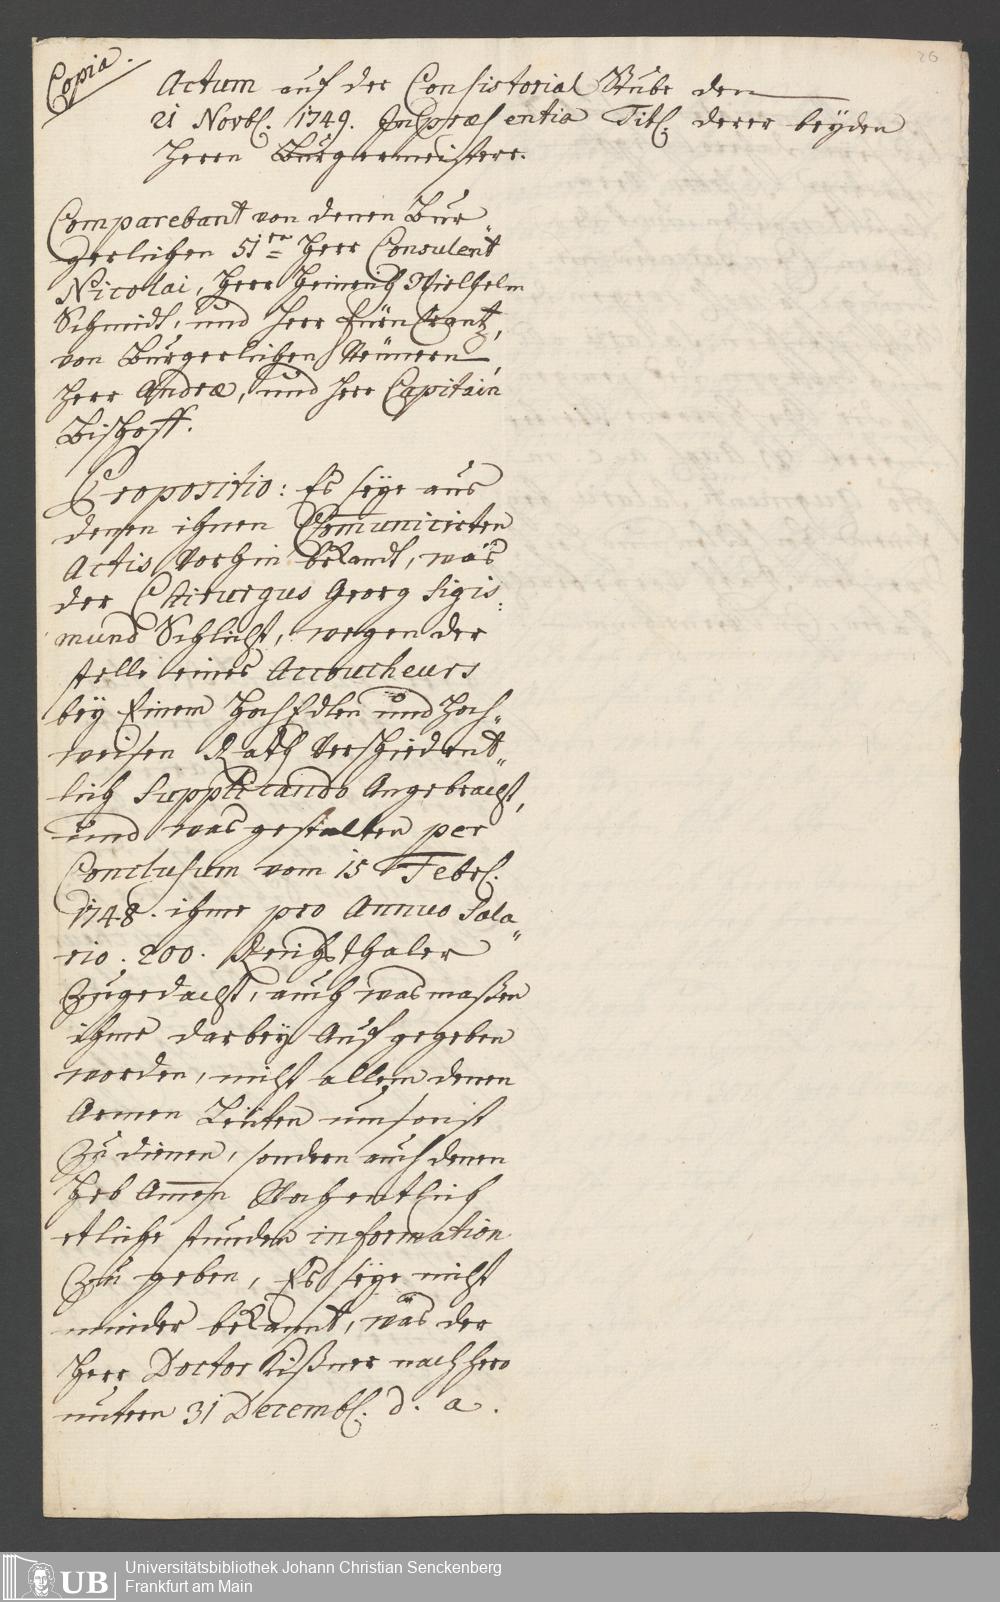 Copia.
26
Actum auf der Consistorial Stube den
21 Novbl. 1749. In præsentia Titl. derer beÿden
Herrn Burgermeistere.
Comparebant von denen Bur„
gerlichen 51rn Herr Consulent
Nicolai, Herr Heinrich Wilhelm
Schmidt, und Herr Fürn Crantz,
von Burgerlichen Neünern,
Herr Andræ, und Herr Capitain
Bischoff.
Propositio: Es seÿe aus
denen ihnen Com̅unicirten
Actis vorhin bekandt, was
der Chirurgus Georg Sigis:
mund Schlicht, wegen der
stelle eines Accoucheurs
beÿ Einem HochEdlen und Hoch„
weisen Rath verschiedent„
lich Supplicando Angebracht,
und was gestalten per
Conclusum vom 15 Febrl.
1748. ihme pro Annuo Sala„
rio. 200. Reichsthaler
Zugedacht, auch was maßen
ihme darbeÿ Aufgegeben
worden, nicht allein denen
Armen Leüten umsonst
Zu dienen, sondern auch denen
Heb Am̅en Wochentlich
etliche stunden information
Zu geben, Es seÿe nicht
minder bekannt, was der
Herr Doctor Kißner nachhero
unterm 31 Decembl. d. a.
Universitätsbibliothek Johann Christian Senckenberg
UB
Frankfurt am Main